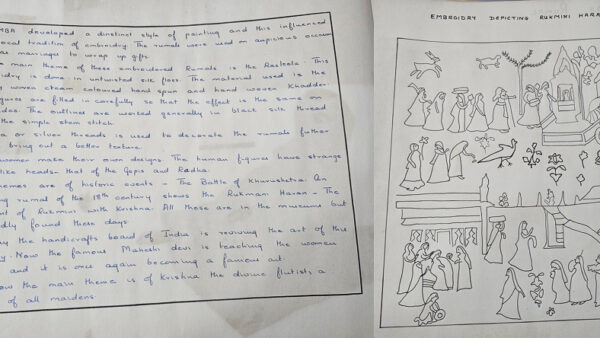 MBA developed a dinstinct style of painting and this influenced
ocal tradition of embroidry. The rumals were used on auspicious occasion
as marriages to wrap up gifts.
e main theme of these embroidered Rumals is the Rasleela. This
idry is done in untwisted silk floss. The material used is the
y woven cream coloured hand spun and hand woven Khadder.
igures are filled in carefully so that the effect is the same on
ides. The outlines are worked generally in black silk thread
the simple stem stitch.
a or silver threads is used to decorate the rumals futher
bring out a better texture.
women make their own designs. The human figures have strange
like heads - that of the Gopis and Radha.
hemes are of historic events - The Battle of Khurushetra. On
ng rumal of the 18th century shows the Rukmani Haran - The
nt of Rukmini with Krishna. All these are in the museums but
dly found these days.
ay the handicrafts board of India is reviving the art of this
y. Now the famous Maheshi devi is teaching the women
and it is once again becoming a famous art.
ow the main theme is of Krishna the divine flutist, a
of all maidens.
EMBROIDRY DEPICTING RUKMINI HARA